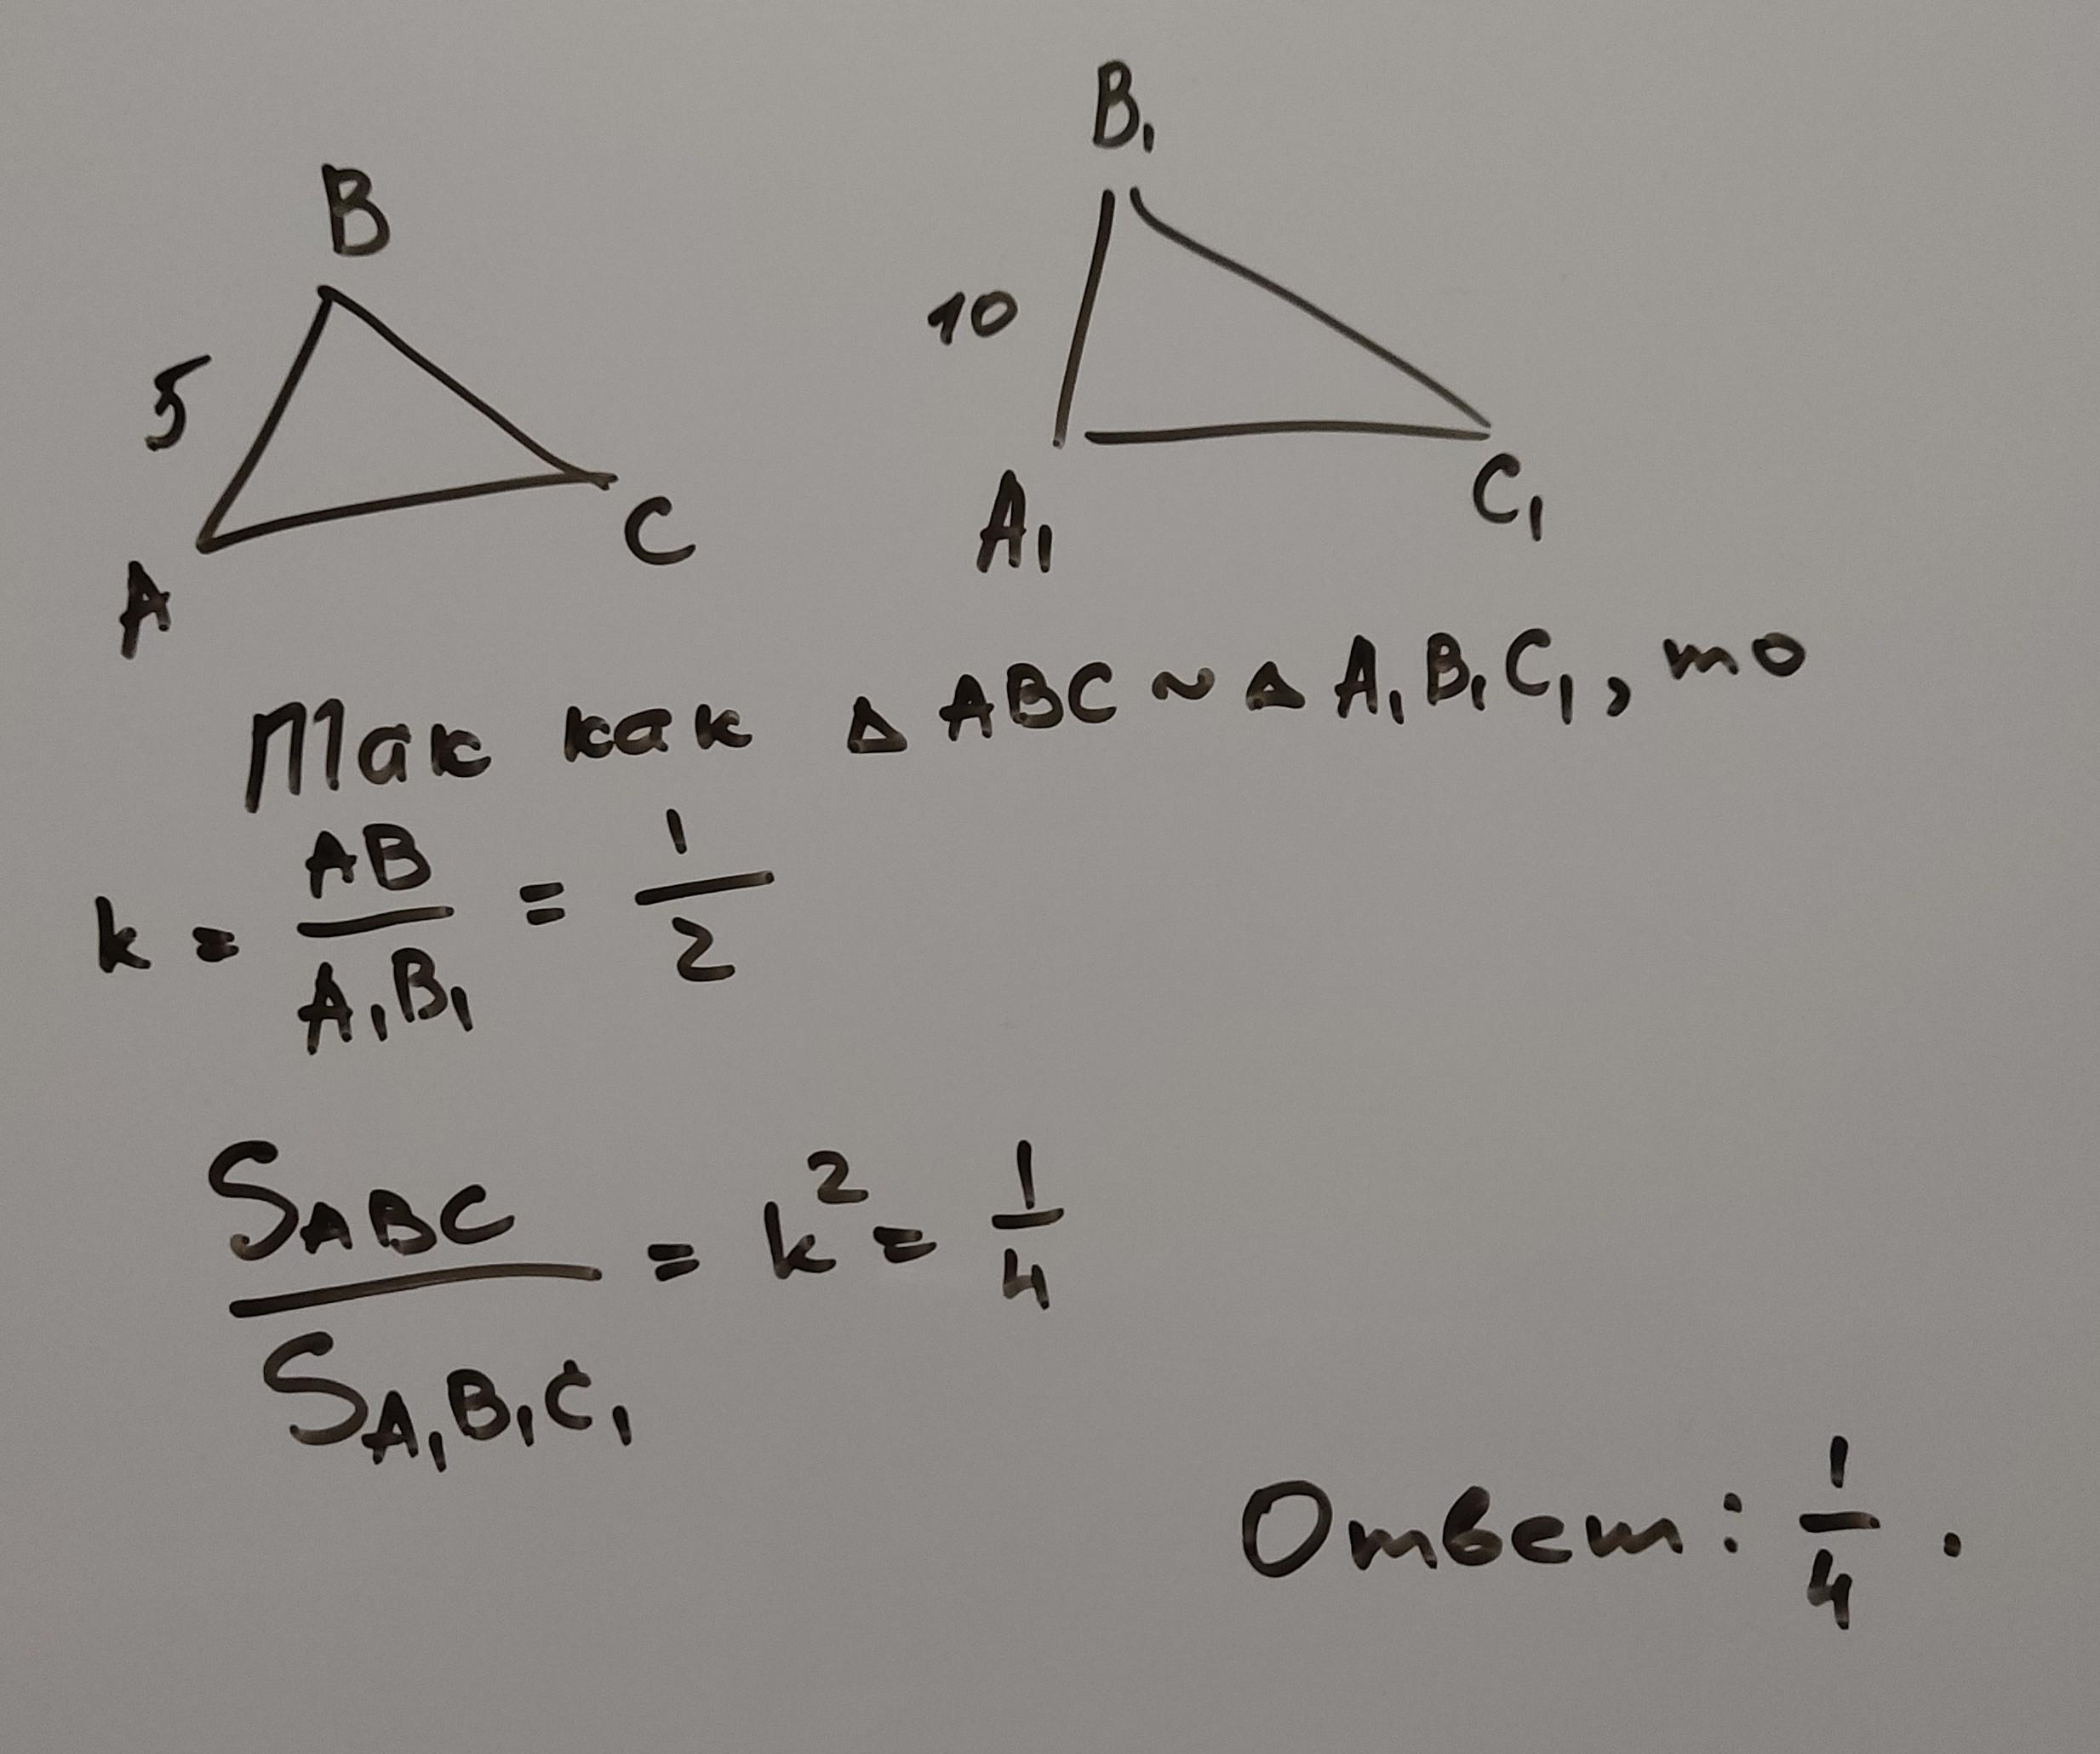 B
B₁
5
10
A
C
A₁
C₁
Так как △ ABC ~ △ A₁B₁C₁, то
k = AB/A₁B₁ = 1/2
S_ABC/S_A₁B₁C₁ = k² = 1/4
Ответ: 1/4.